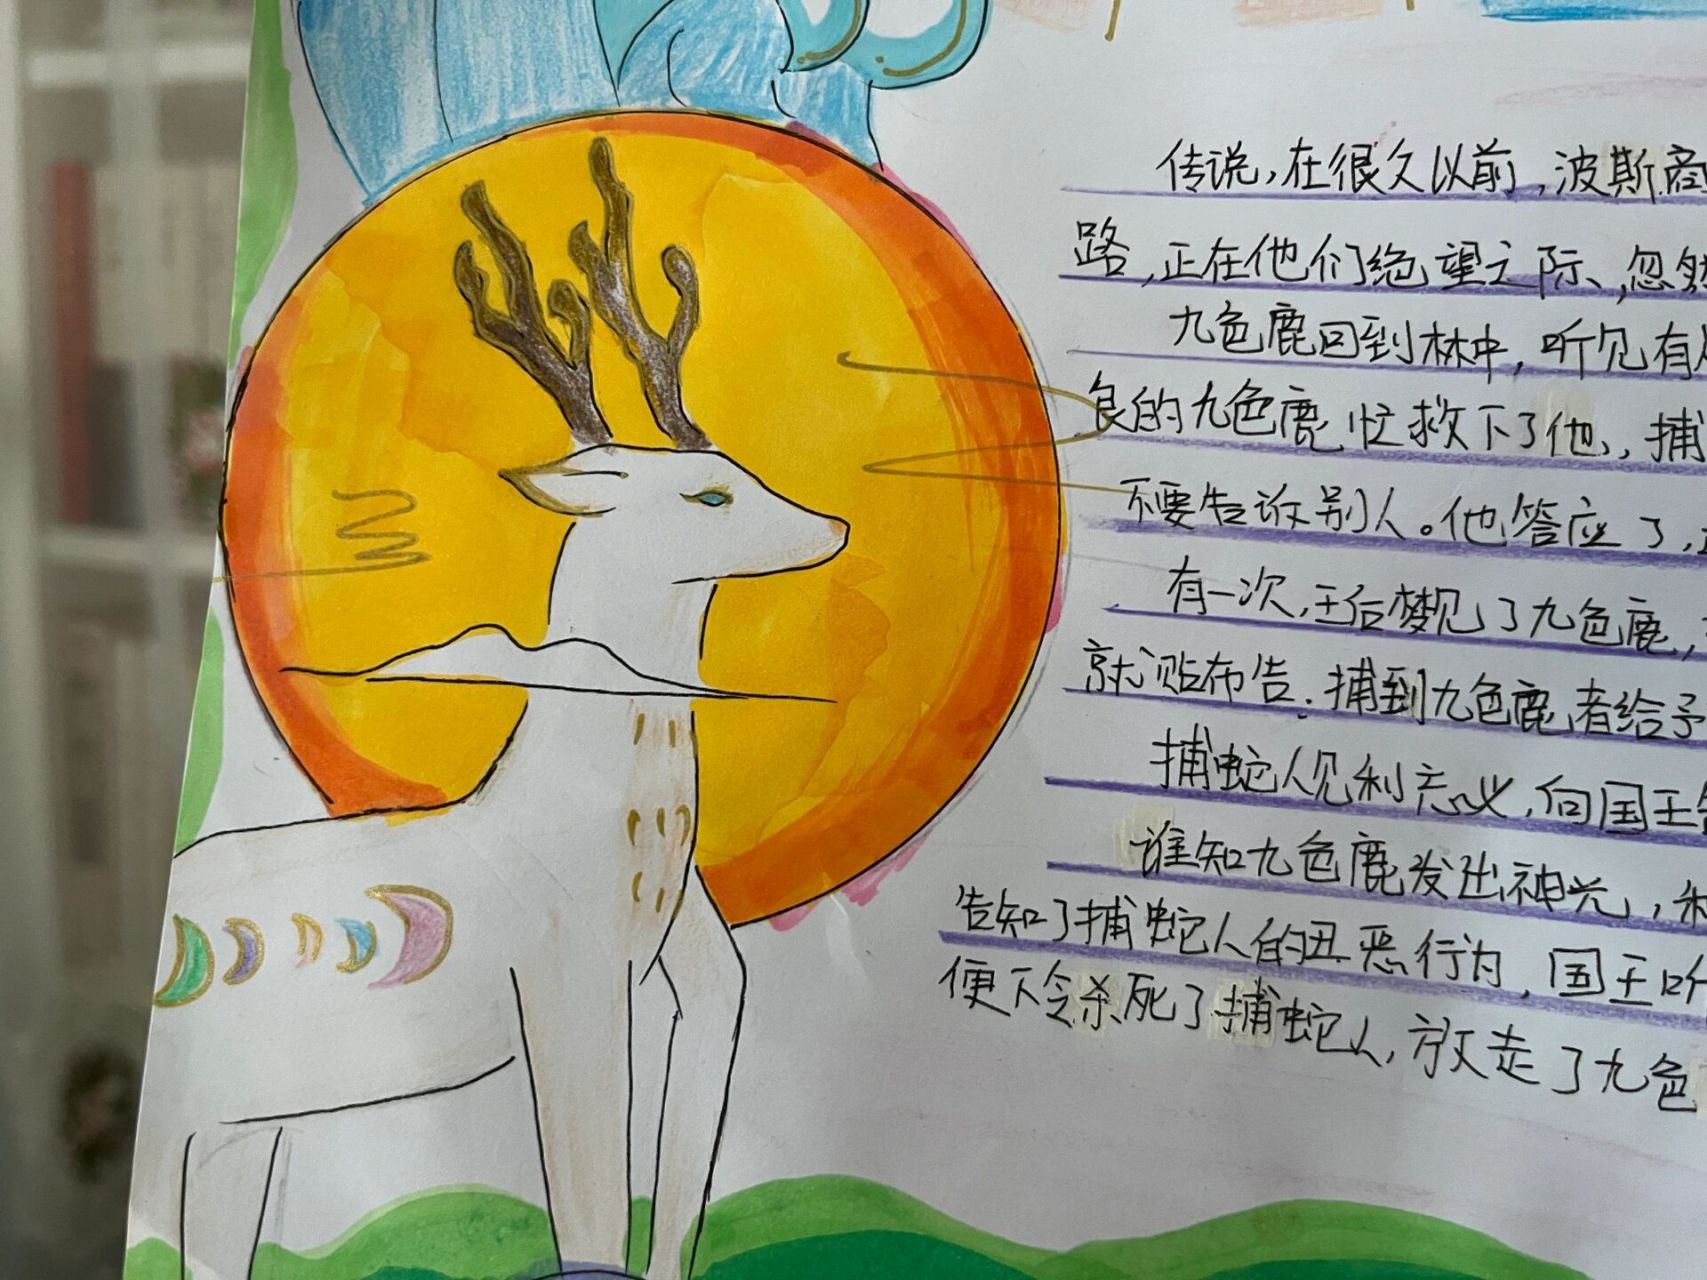 传说，在很久以前，波斯商
路，正在他们绝望之际、，忽然
九色鹿回到林中，听见有
良的九色鹿忙救下了他，捕
不要告诉别人。他答应了，
有一次，王后梦见了九色鹿，
就贴布告．捕到九色鹿者给予
捕蛇人见利忘义，向国王
谁知九色鹿发出神光，
告知了捕蛇人的丑恶行为，国王听
便下令杀死了捕蛇人，放走了九色